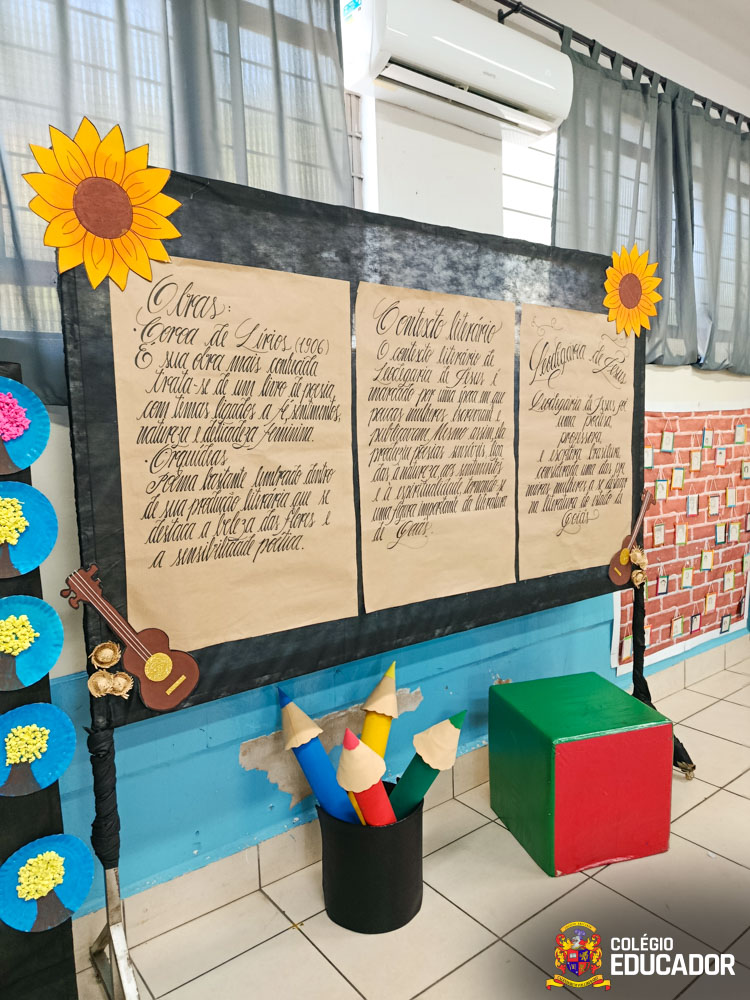 Obras:
Coroa de Lírios (1906)
É sua obra mais conhecida
trata-se de um livro de poesia,
com temas ligados a fé, sentimentos,
natureza e delicadeza feminina.
Orquídeas
Poema bastante lembrado dentro
de sua produção literária que se
destaca a beleza das flores e
a sensibilidade poética.
Contexto literário
O contexto literário de
Leodegária de Jesus é
marcado por uma época em que
poucas mulheres escreviam e
publicavam. Mesmo assim, ela
produziu poesias
da natureza aos sentimentos
e à espiritualidade, tornando-se
uma figura importante da literatura
de Goiás.
Leodegária de Jesus
Leodegária de Jesus foi
uma poetisa,
professora
e escritora brasileira,
considerada uma das pri-
meiras mulheres a se destacar
na literatura do estado de
Goiás.
COLÉGIO
EDUCADOR